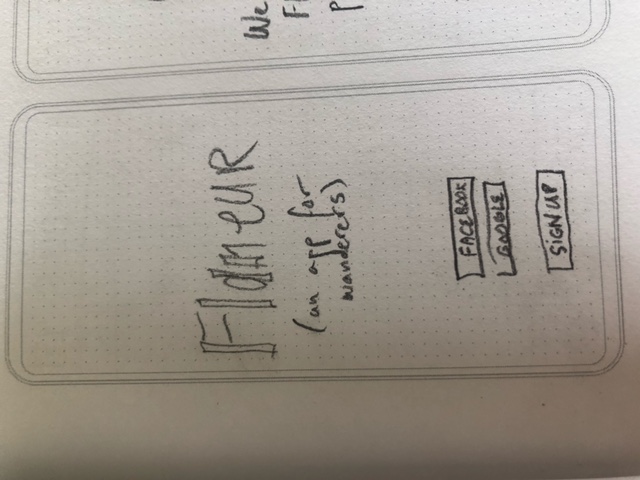 Flaneur
(an app for
wanderers)
FACEBOOK
GOOGLE
SIGN UP
We
Fl
P